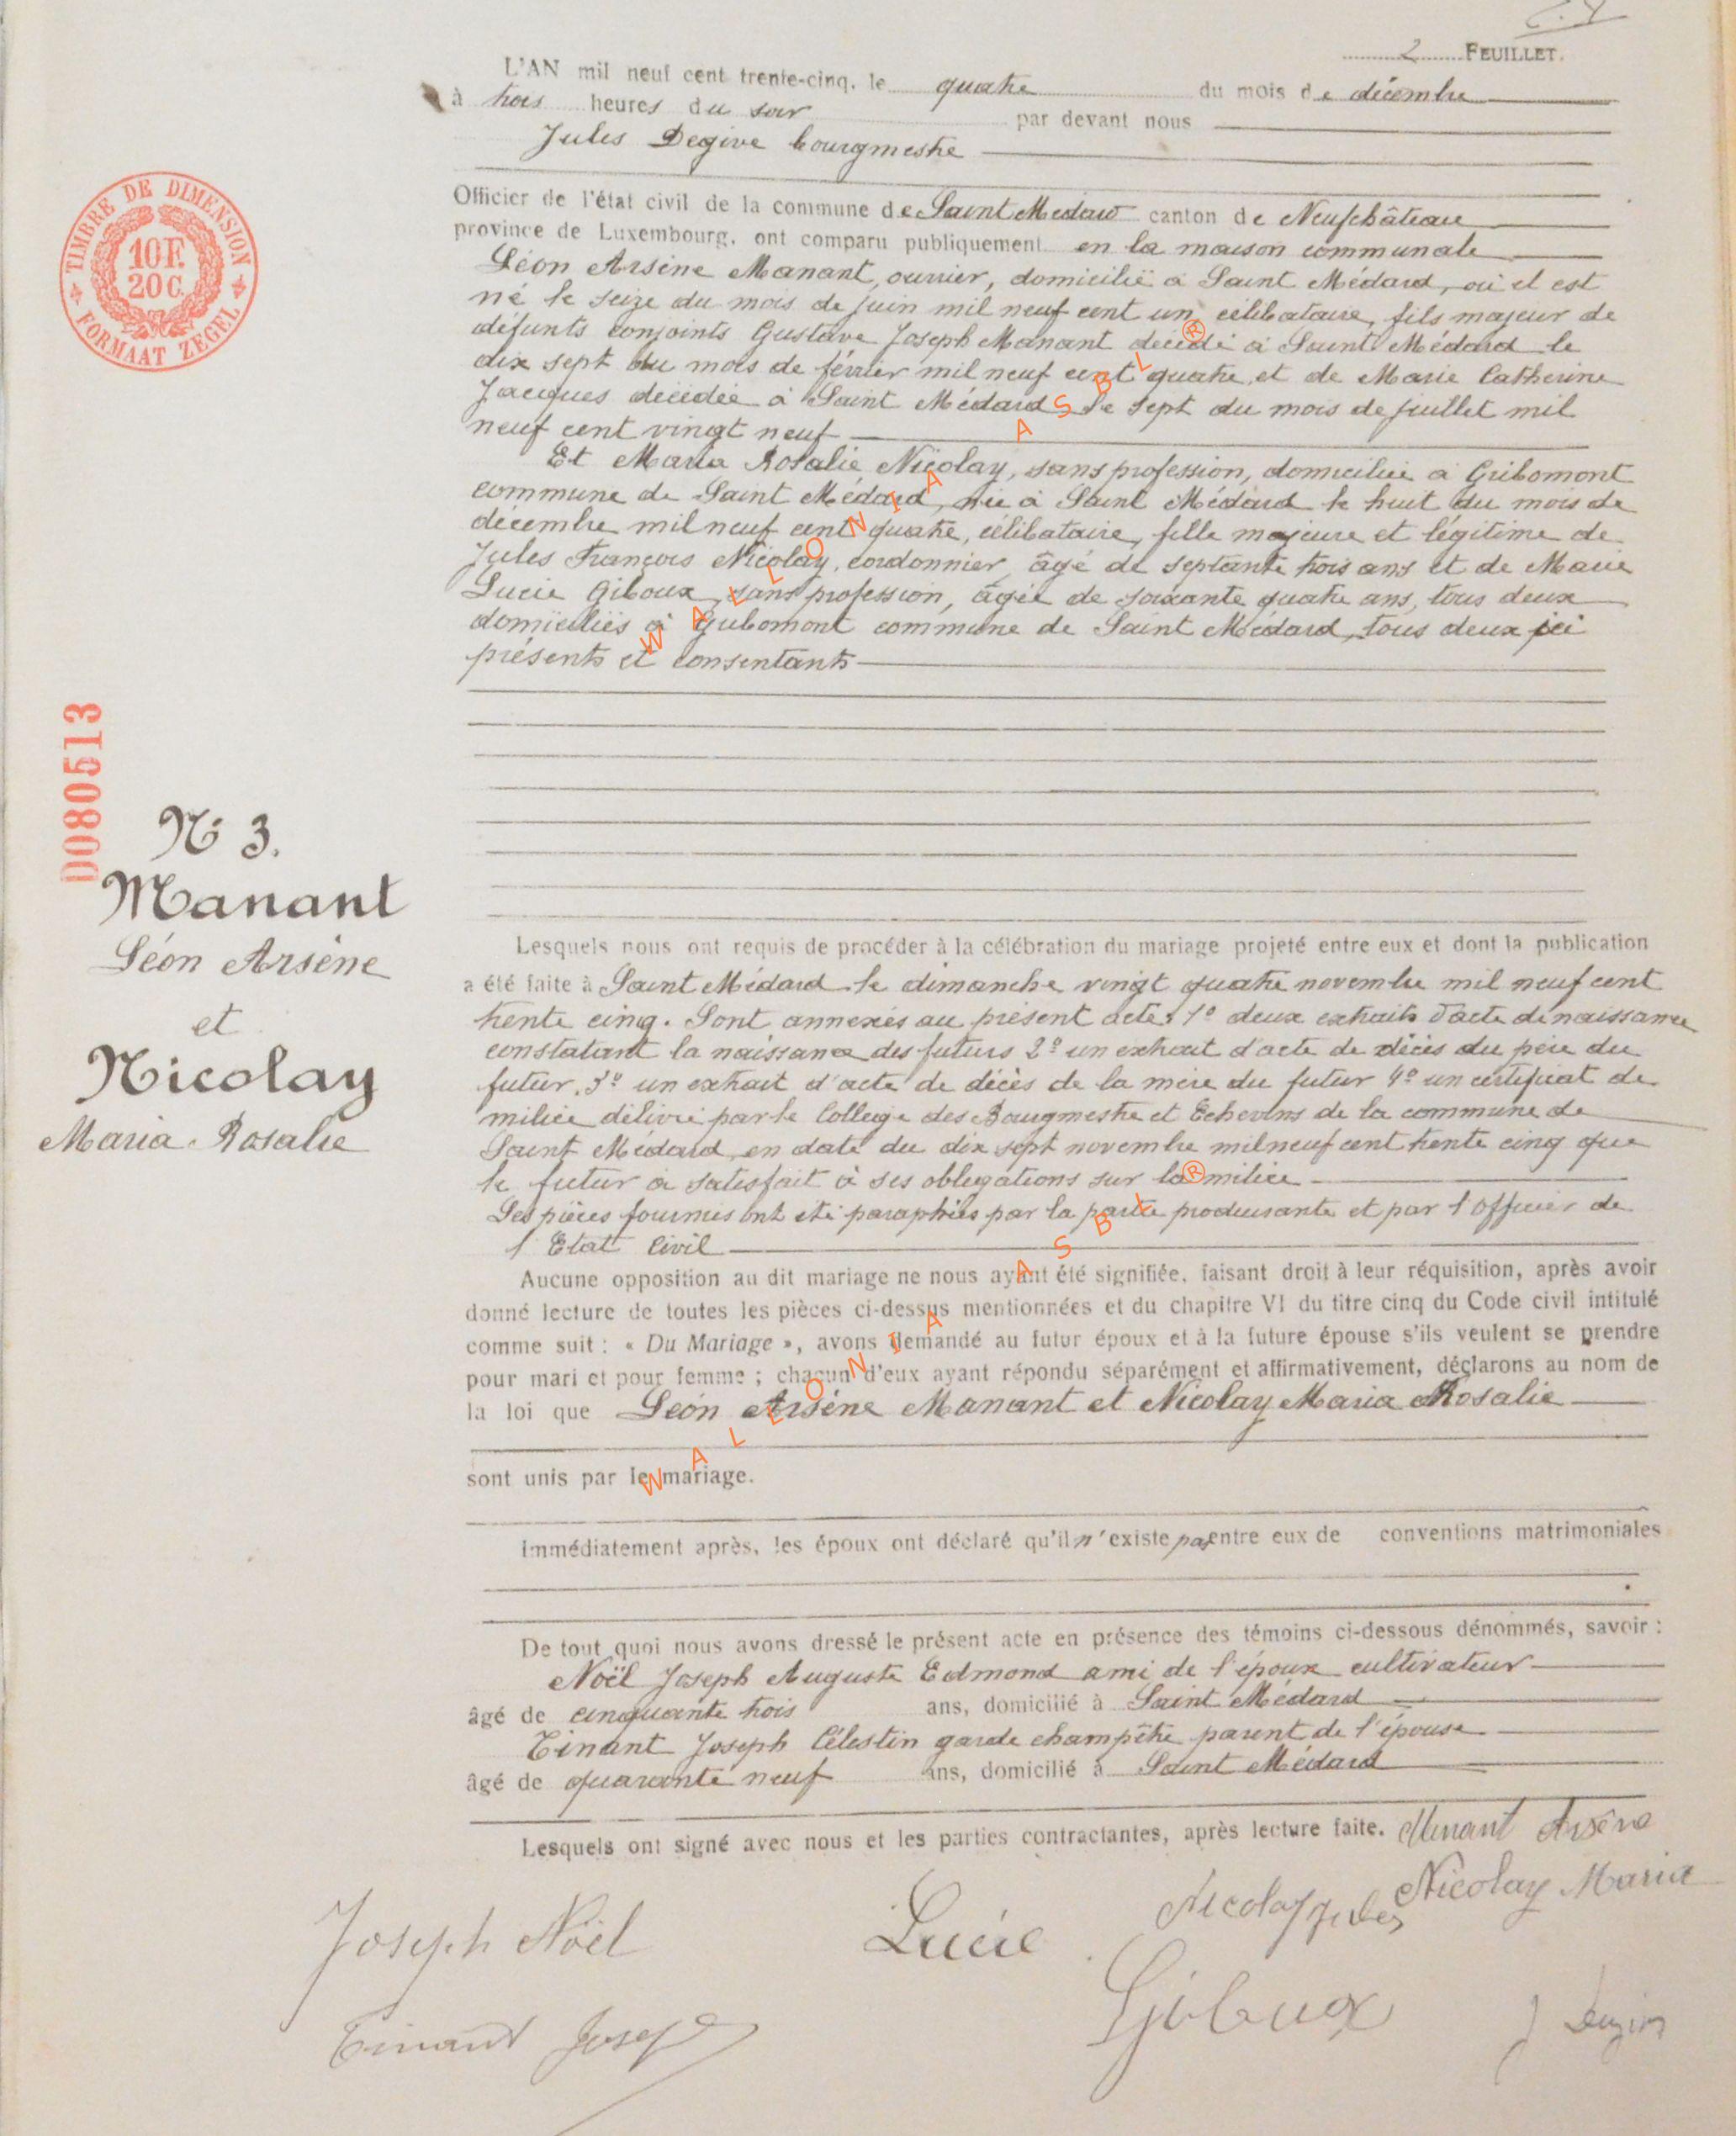 2 FEUILLET.
L'AN mil neuf cent trente-cinq, le quatre du mois de décembre
à trois heures du soir par devant nous
Jules Degive bourgmestre
Officier de l'état civil de la commune de Saint Médard canton de Neufchâteau
province de Luxembourg, ont comparu publiquement en la maison communale
Léon Arsène Manant, ouvrier, domicilié à Saint Médard, où il est
né le seize du mois de juin mil neuf cent un, célibataire, fils majeur de
défunts conjoints Gustave Joseph Manant décédé à Saint Médard le
dix sept du mois de février mil neuf cent quatre, et de Marie Catherine
Jacques décédée à Saint Médard le sept du mois de juillet mil
neuf cent vingt neuf
Et Maria Rosalie Nicolay, sans profession, domiciliée à Gribomont
commune de Saint Médard, née à Saint Médard le huit du mois de
décembre mil neuf cent quatre, célibataire, fille majeure et légitime de
Jules François Nicolay, cordonnier, âgé de septante trois ans et de Marie
Lucie Giboux, sans profession, âgée de soixante quatre ans, tous deux
domiciliés à Gribomont commune de Saint Médard, tous deux ici
présents et consentants
TIMBRE DE DIMENSION
10 F.
20 C.
FORMAAT ZEGEL
D080513
N° 3.
Manant
Léon Arsène
et
Nicolay
Maria Rosalie
Lesquels nous ont requis de procéder à la célébration du mariage projeté entre eux et dont la publication
a été faite à Saint Médard le dimanche vingt quatre novembre mil neuf cent
trente cinq. Sont annexés au présent acte: 1° deux extraits d'acte de naissance
constatant la naissance des futurs 2° un extrait d'acte de décès du père du
futur. 3° un extrait d'acte de décès de la mère du futur 4° un certificat de
milice délivré par le Collège des Bourgmestre et Echevins de la commune de
Saint Médard en date du dix sept novembre mil neuf cent trente cinq que
le futur a satisfait à ses obligations sur la milice
Les pièces fournies ont été paraphées par la partie produisante et par l'Officier de
l'Etat Civil
Aucune opposition au dit mariage ne nous ayant été signifiée, faisant droit à leur réquisition, après avoir
donné lecture de toutes les pièces ci-dessus mentionnées et du chapitre VI du titre cinq du Code civil intitulé
comme suit : « Du Mariage », avons demandé au futur époux et à la future épouse s'ils veulent se prendre
pour mari et pour femme ; chacun d'eux ayant répondu séparément et affirmativement, déclarons au nom de
la loi que Léon Arsène Manant et Nicolay Maria Rosalie
sont unis par le mariage.
Immédiatement après, les époux ont déclaré qu'il n'existe pas entre eux de conventions matrimoniales
De tout quoi nous avons dressé le présent acte en présence des témoins ci-dessous dénommés, savoir :
Noël Joseph Auguste Edmond ami de l'époux cultivateur
âgé de cinquante trois ans, domicilié à Saint Médard
Tinant Joseph Célestin garde champêtre parent de l'épouse
âgé de quarante neuf ans, domicilié à Saint Médard
Lesquels ont signé avec nous et les parties contractantes, après lecture faite. Manant Arsène
Nicolay Jules Nicolay Maria
Joseph Noël Lucie
Giboux
Tinant Joseph
WALLONIA ASBL ®
WALLONIA ASBL ®